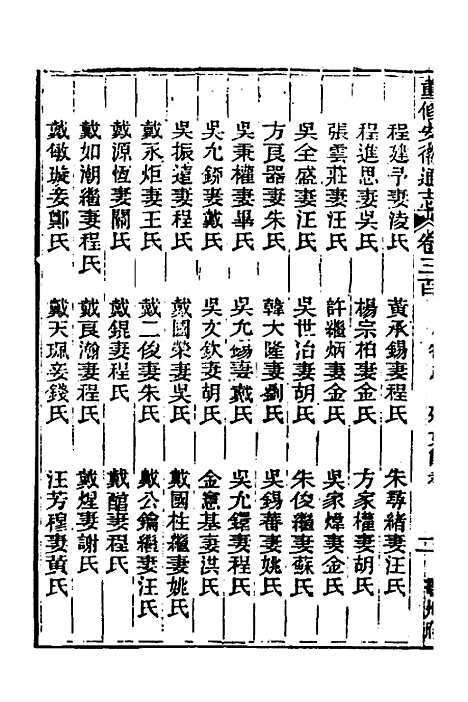 重修安徽通志 卷三百
程建予妻淩氏 黃承錫妻程氏 朱尋緒妻汪氏
程進思妻吳氏 楊宗柏妻金氏 方家權妻胡氏
張雲莊妻汪氏 許繼炳妻金氏 吳家煒妻金氏
吳全盛妻汪氏 吳世治妻胡氏 朱俊繼妻蘇氏
方良器妻朱氏 韓大隆妻劉氏 吳錫蕃妻姚氏
吳秉權妻畢氏 吳允錫妻戴氏 吳允鐀妻程氏
吳允鏴妻戴氏 吳文欽妻胡氏 金憲基妻洪氏
吳振遠妻程氏 戴國榮妻吳氏 戴國柱繼妻姚氏
戴永炬妻王氏 戴二俊妻朱氏 戴公鑰繼妻汪氏
戴源恆妻關氏 戴錕妻程氏 戴館妻程氏
戴如潮繼妻程氏 戴良瀚妻程氏 戴煋妻謝氏
戴敏璇妾鄭氏 戴天珮妾錢氏 汪芳程妻黃氏